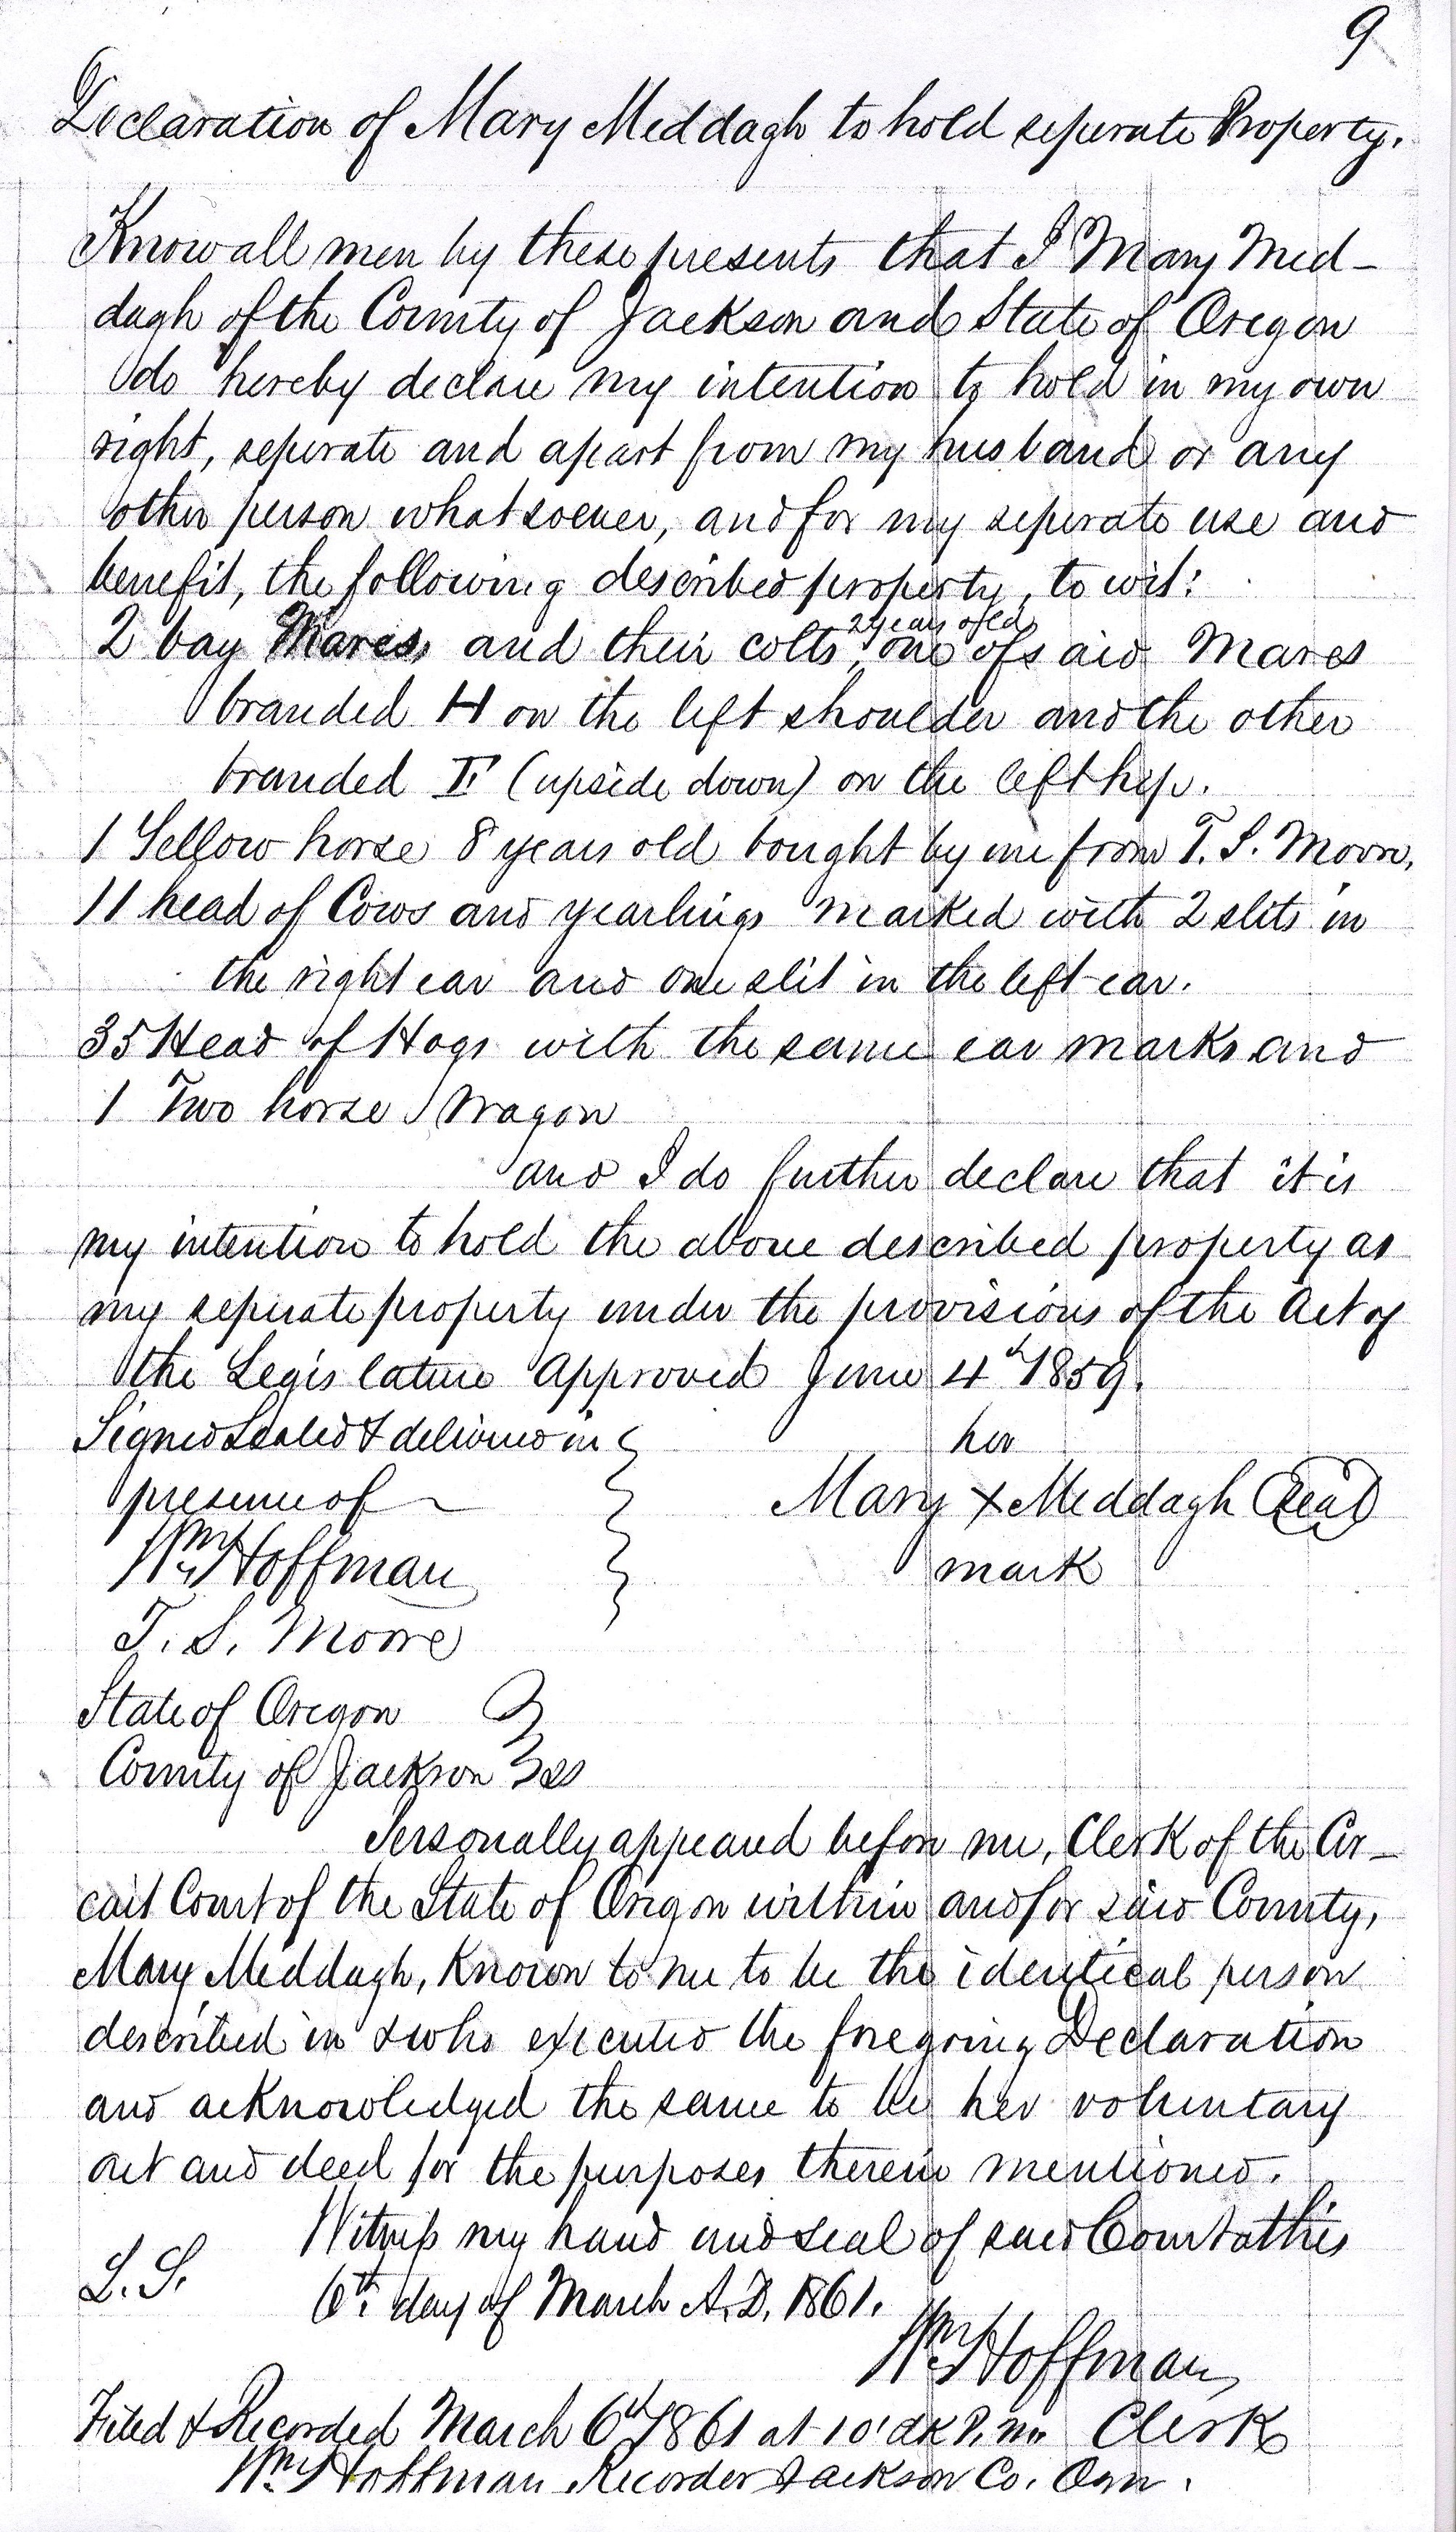 9
Declaration of Mary Meddagh to hold seperate Property.
Know all men by these presents that I Mary Med-
dagh of the County of Jackson and State of Oregon
do hereby declare my intention to hold in my own
right, seperate and apart from my husband or any
other person whatsoever, and for my seperate use and
benefit, the following described property, to wit:
2 years old
2 bay Mares, and their colts, one of said Mares
branded H on the left shoulder and the other
branded F (upside down) on the left hip.
1 Yellow horse 8 years old bought by me from T. S. Moore,
11 head of Cows and yearlings marked with 2 slits in
the right ear and one slit in the left ear.
35 Head of Hogs with the same ear marks and
1 Two horse Wagon
and I do further declare that it is
my intention to hold the above described property as
my seperate property under the provisions of the Act of
the Legislature Approved June 4th 1859.
Signed Sealed & delivered in her
presence of Mary X Meddagh Seal
Wm Hoffman mark
T. S. Moore
State of Oregon
County of Jackson ss
Personally appeared before me, Clerk of the Cir-
cuit Court of the State of Oregon within and for said County,
Mary Meddagh, Known to me to be the identical person
described in & who executed the foregoing Declaration
and acknowledged the same to be her voluntary
act and deed for the purposes therein mentioned.
Witness my hand and seal of said Court this
L. S. 6th day of March A.D. 1861.
Wm Hoffman,
Filed & Recorded March 6th 1861 at 1 O'clk P.m. Clerk
Wm Hoffman Recorder Jackson Co. Ogn.